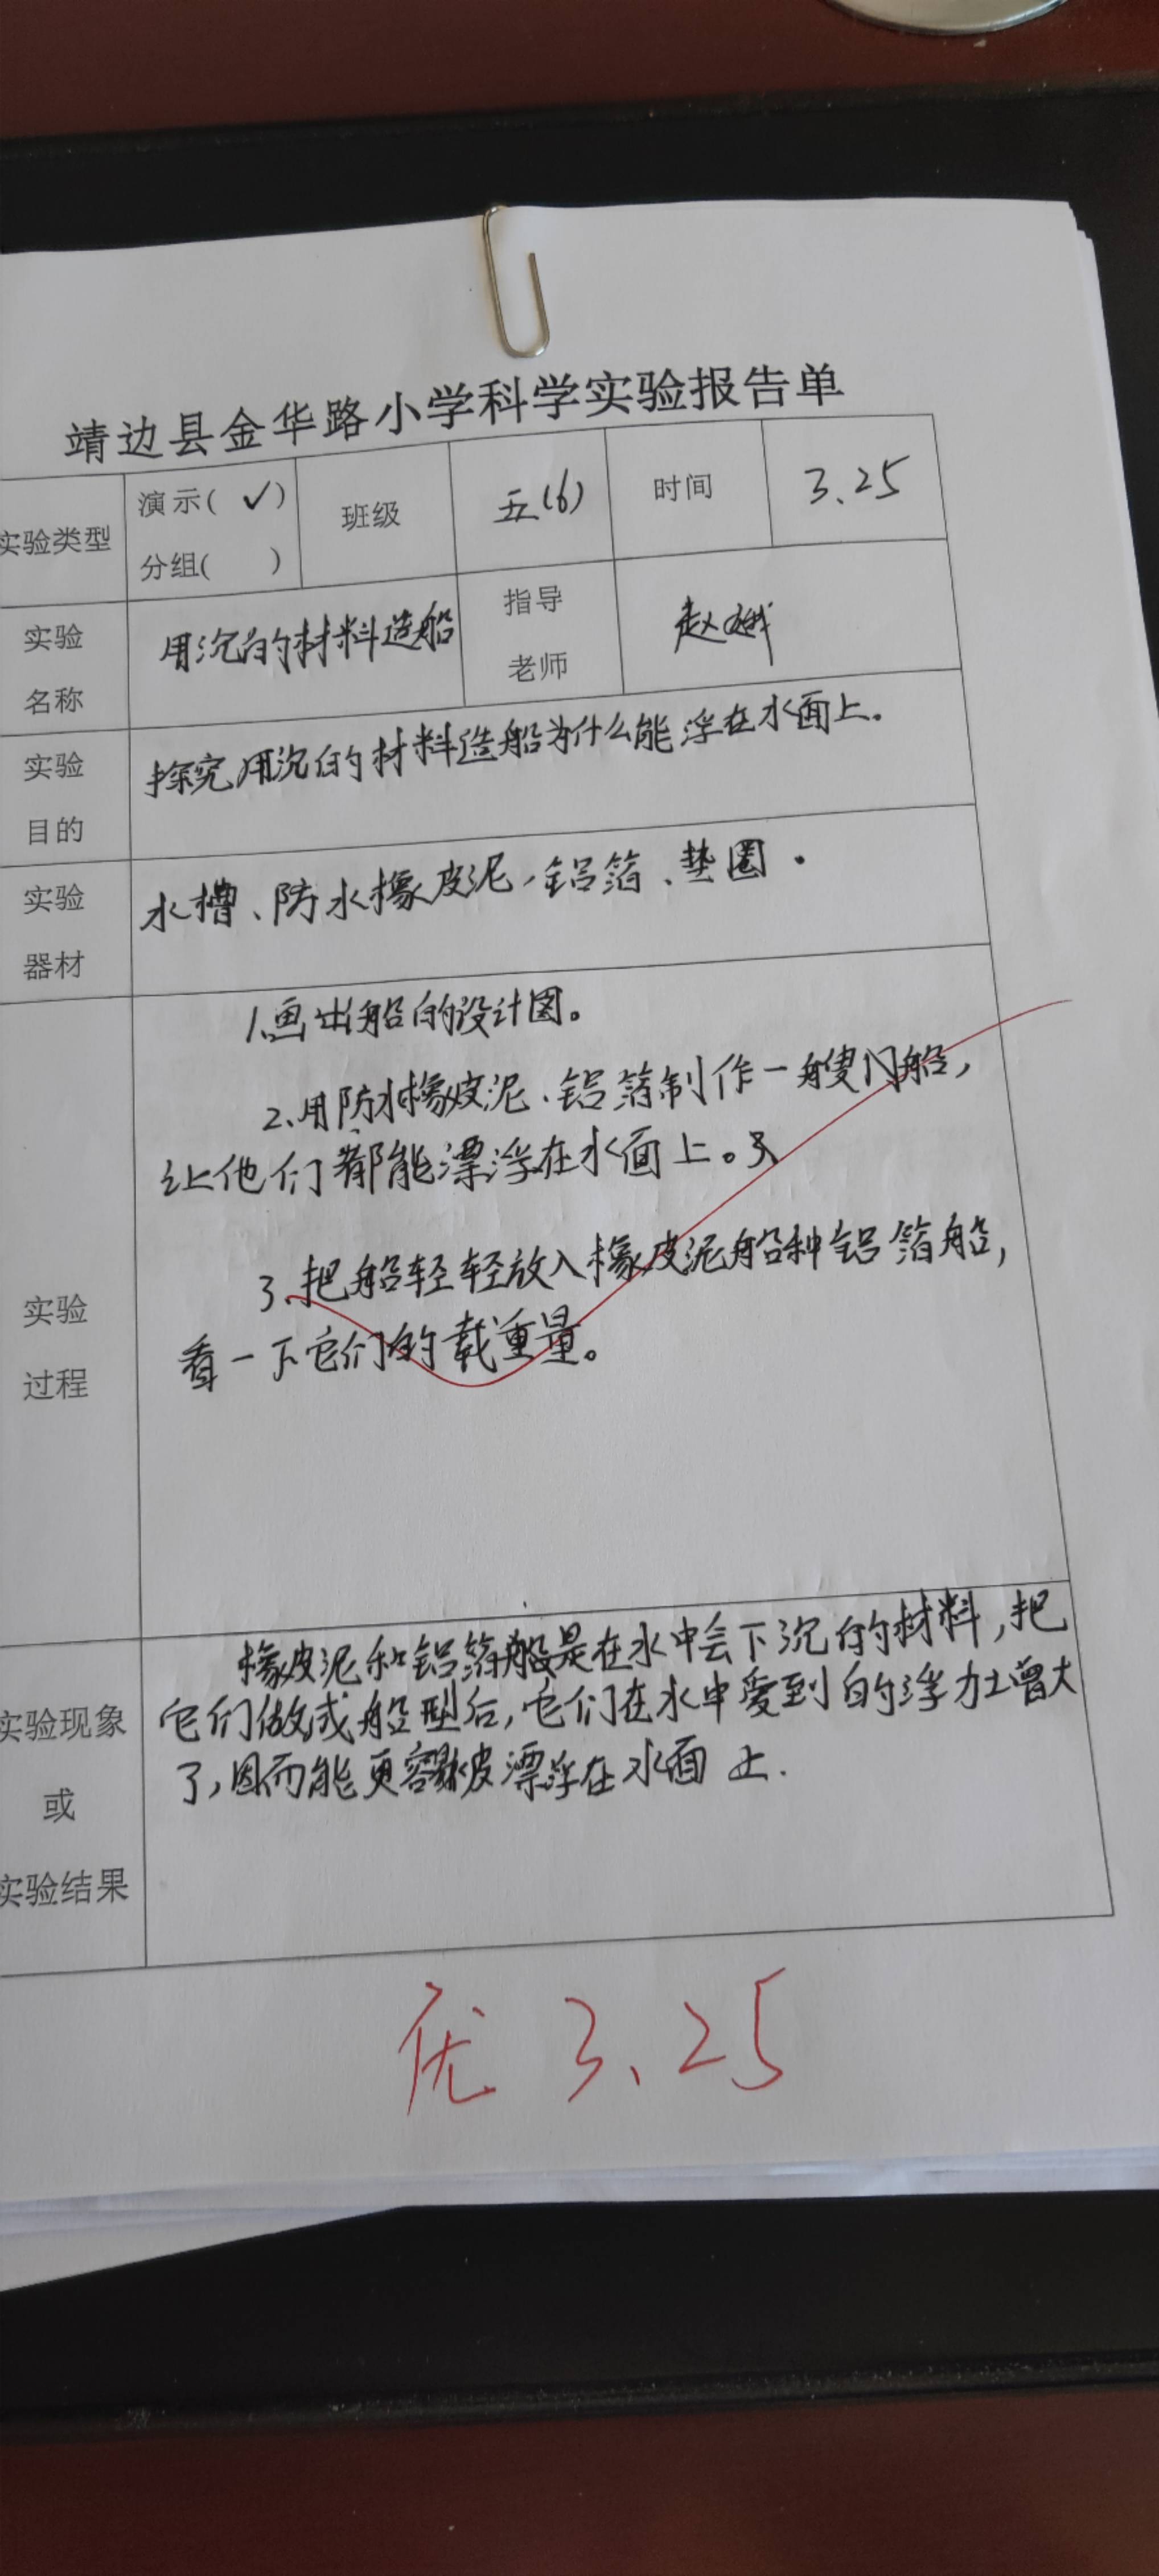 靖边县金华路小学科学实验报告单
实验类型
演示( ✓ )
分组( )
班级
五(6)
时间
3.25
实验
名称
用沉的材料造船
指导
老师
赵
实验
目的
探究用沉的材料造船为什么能浮在水面上。
实验
器材
水槽、防水橡皮泥、铝箔、垫圈.
实验
过程
1.画出船的设计图。
2.用防水橡皮泥、铝箔制作一艘船,
让他们都能漂浮在水面上。
3.把船轻轻放入橡皮泥船种铝箔船,
看一下它们的载重量。
实验现象
或
实验结果
橡皮泥和铝箔般是在水中会下沉的材料,把
它们做成船型后,它们在水中受到的浮力增大
了,因而能更容漂浮在水面上.
优 3.25